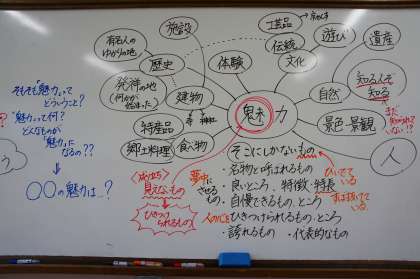 工芸品
きんつば
施設
伝統
遊び
遺産
有名人の
ゆかりの地
歴史
体験
文化
知る人ぞ
知る
そもそも「魅力」って
どういうこと?
発祥の地
(何かが
始まった)
建物
自然
まだ
"魅力"って何?
どんなものが
"魅力"に
なるの??
寺
神社
魅力
特産品
景色・景観
郷土料理
食べ物
人
そこにしかないもの
・名物と呼ばれるもの
・良いところ、特徴・特長
ひいでて
いる
〇〇の魅力は…?
見えないもの
夢中に
させる
もの
・自慢できるもの、ところ
ずばぬけて
いる
ひきつけ
られるもの
人の心を
ひきつけられるもの、ところ
・誇れるもの
・代表的なもの